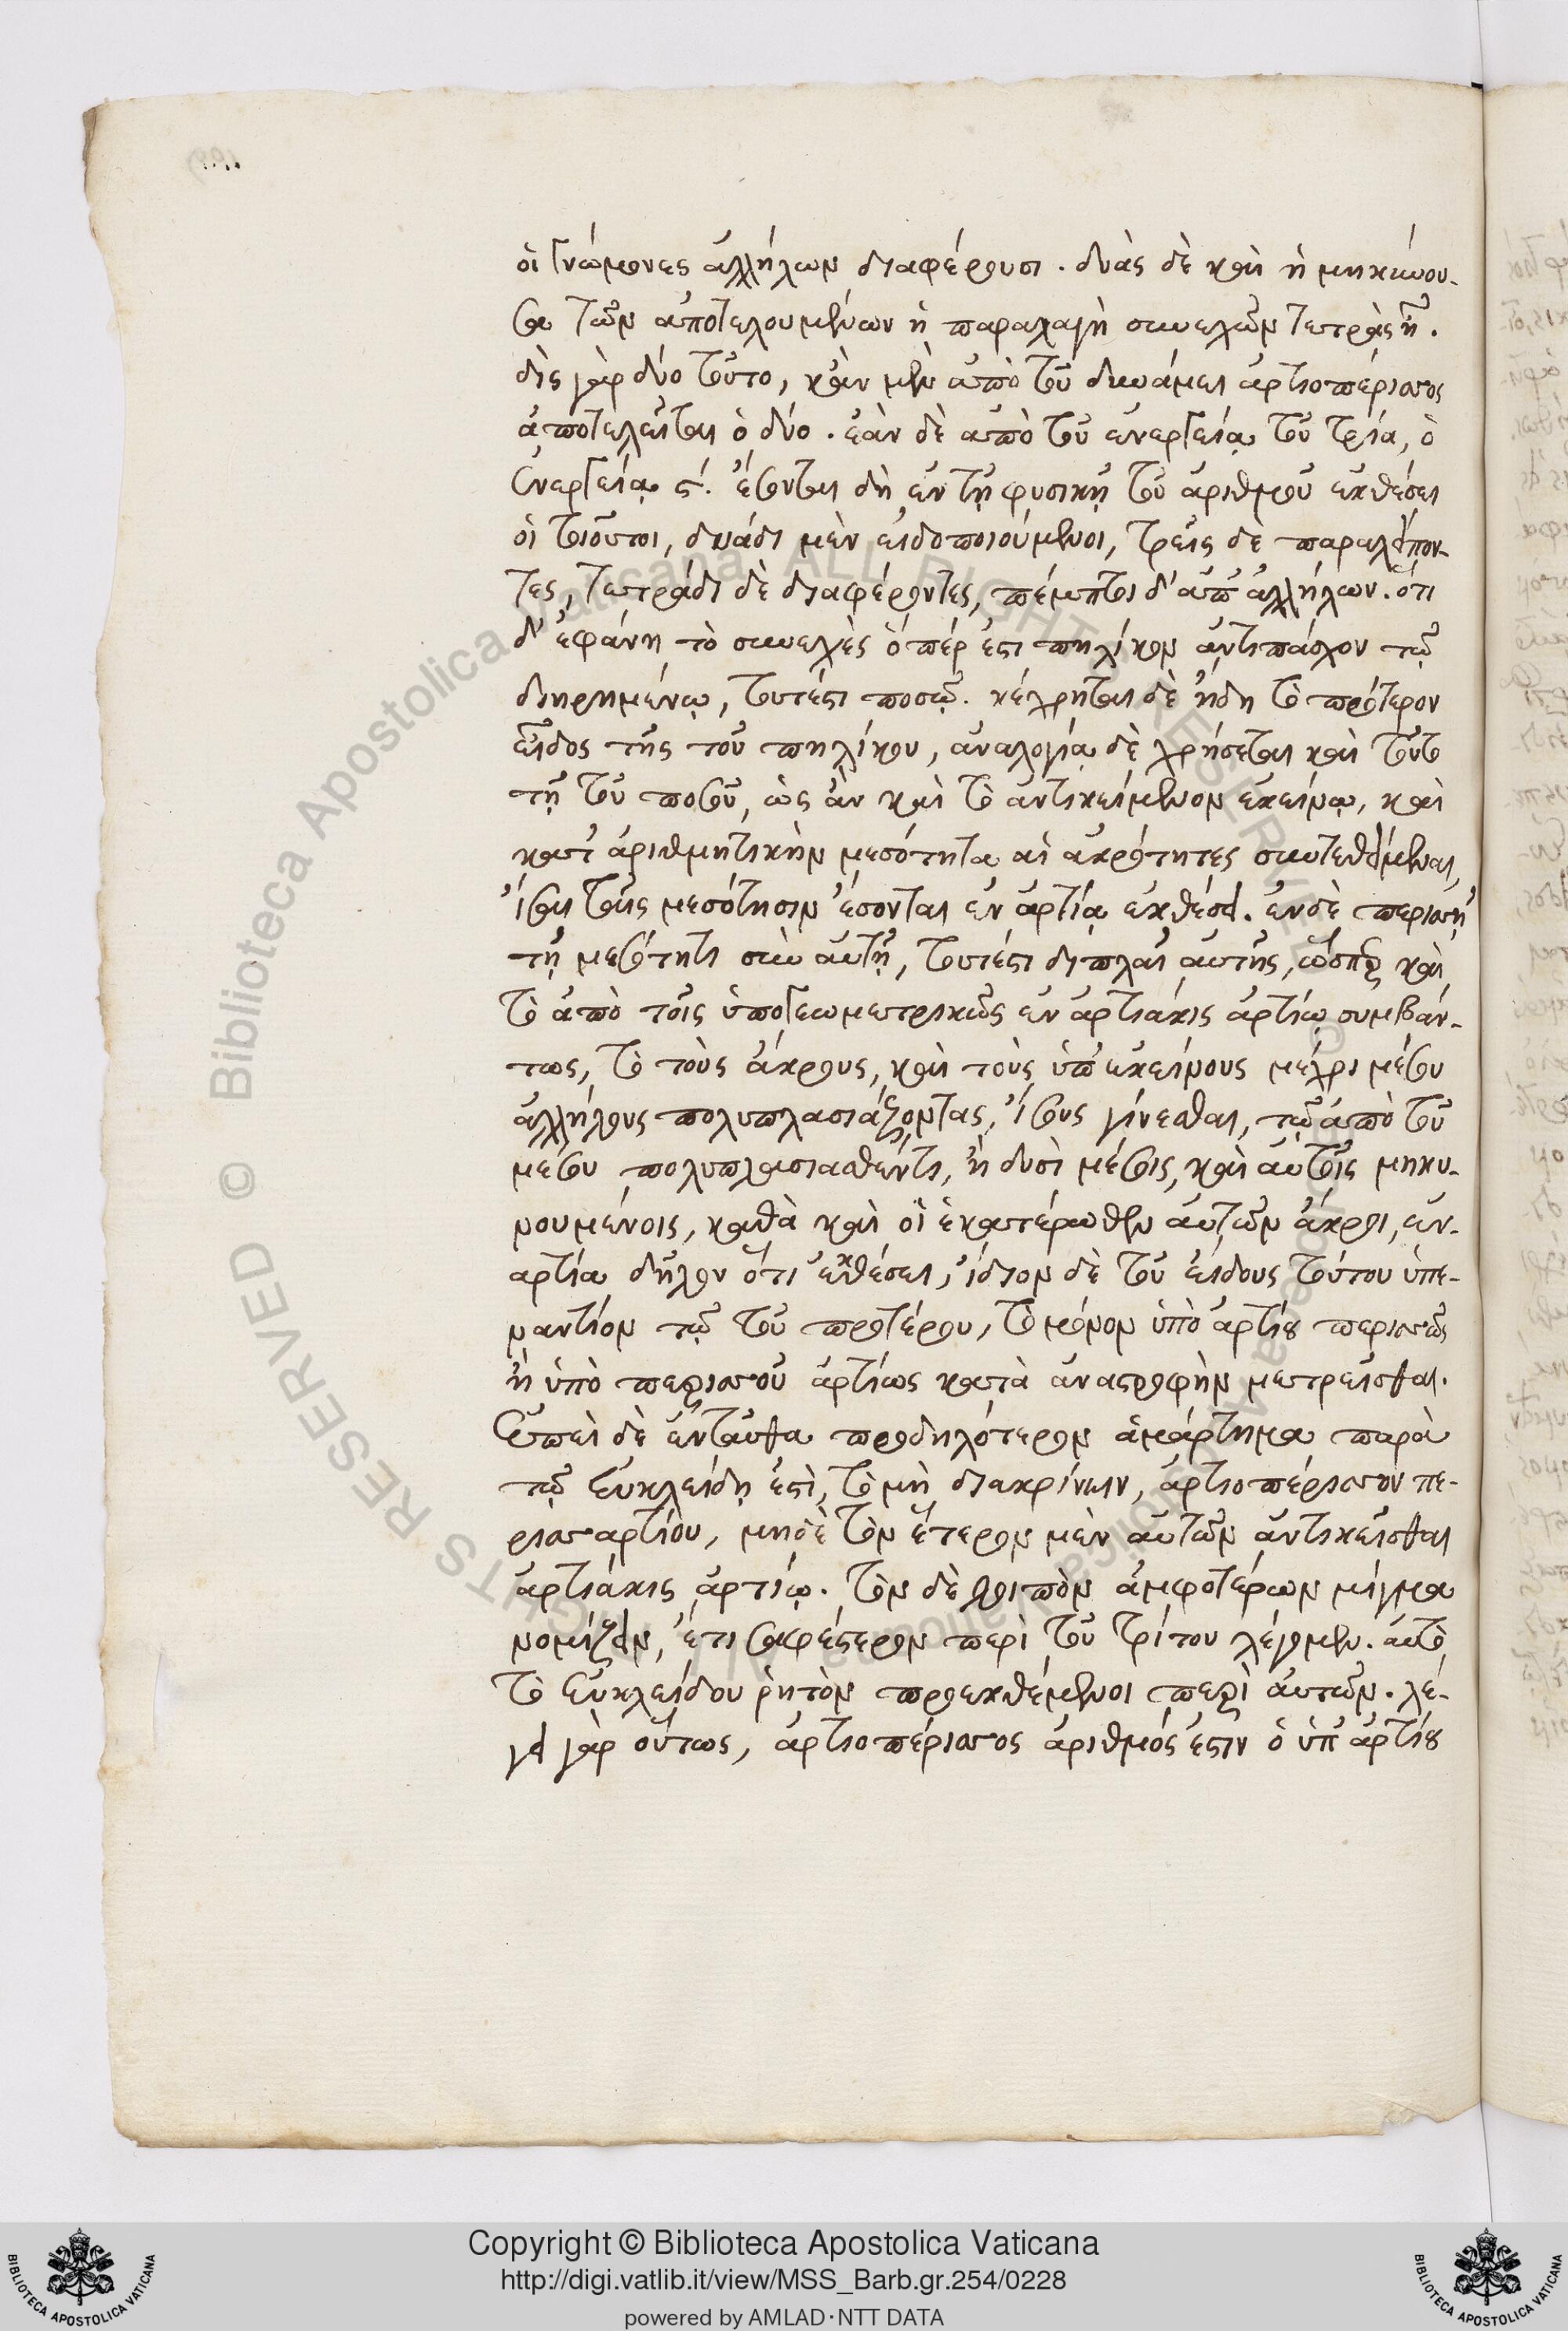 οἱ γνώμονες ἀλλήλων διαφέρουσι. δυὰς δὲ καὶ ἡ μηκύνου-
σα τῶν ἀποτελουμένων ἡ παραλαγὴ συνεχῶν τετρὰς ἦ.
δὶς γὰρ δύο τοῦτο, κἂν μὲν ἀπὸ τοῦ δυνάμει ἀρτιοπέρισσος
ἀποτελεῖται ὁ δύο. ἐὰν δὲ ἀπὸ τοῦ ἐνεργείᾳ τοῦ τρία, ὁ
ἐνεργείᾳ ϛ΄. ἔσονται δὴ ἐν τῇ φυσικῇ τοῦ ἀριθμοῦ ἐκθέσει
οἱ τοιοῦτοι, δυάδι μὲν εἰδοποιούμενοι, τρεῖς δὲ παραλείπον-
τες, τετράδι δὲ διαφέροντες, πέμπτοι δ' ἀπ' ἀλλήλων. ὅτι
δ' ἐφάνη τὸ συνεχὲς ὅπέρ ἐστι πηλίκον ἀντιπάσχον τῷ
διῃρημένῳ, τουτέστι ποσῷ. κέχρηται δὲ ἤδη τὸ πρότερον
εἶδος τῆς τοῦ πηλίκου, ἀναλογίᾳ δὲ χρήσεται καὶ τοῦτο
τῇ τοῦ ποσοῦ, ὡς ἂν καὶ τὸ ἀντικείμενον ἐκείνῳ, καὶ
κατ' ἀριθμητικὴν μεσότητα αἱ ἀκρότητες συντεθείμεναι,
ἴσαι ταῖς μεσότησιν ἔσονται ἐν ἀρτίᾳ ἐκθέσει. ἐν δὲ περισσῇ
τῇ μεσότητι σὺν αὐτῇ, τουτέστι διπλαῖ αὐτῆς, ὥσπερ καὶ
τὸ ἀπὸ τοῖς ὑπογεωμετρικῶς ἐν ἀρτιάκις ἀρτίῳ συμβάν-
τως, τὸ τοὺς ἄκρους, καὶ τοὺς ὑπ' ἐκείνους μέχρι μέσου
ἀλλήλους πολυπλασιάζοντας, ἴσους γίνεσθαι, τῷ ἀπὸ τοῦ
μέσου πολυπλασιασθέντι, ἢ δυσὶ μέσοις, καὶ αὐτοῖς μηκυ-
νουμένοις, καθὰ καὶ οἱ ἑκατέρωθεν αὐτῶν ἄκροι, ἐν
ἀρτίᾳ δῆλον ὅτι ἐκθέσει, ἴδιον δὲ τοῦ εἴδους τούτου ὑπε-
ναντίον τῷ τοῦ προτέρου, τὸ μόνον ὑπὸ ἀρτίου περισσῶς
ἢ ὑπὸ περισσοῦ ἀρτίως κατὰ ἀναστροφὴν μετρεῖσθαι.
Ἐπεὶ δὲ ἐνταῦθα προδηλότερον ἁμάρτημα παρὰ
τῷ Εὐκλείδῃ ἐστὶ, τὸ μὴ διακρίνειν, ἀρτιοπέρισσον πε-
ρισσαρτίου, μηδὲ τὸν ἕτερον μὲν αὐτῶν ἀντικεῖσθαι
ἀρτιάκις ἀρτίῳ. τὸν δὲ λοιπὸν ἀμφοτέρων μίγμα
νομίζειν, ἔτι σαφέστερον περὶ τοῦ τρίτου λέγομεν. αὐτὸ
τὸ Εὐκλείδου ῥητὸν προεκθέμενοι περὶ αὐτῶν. λέ-
γει γὰρ οὕτως, ἀρτιοπέρισσος ἀριθμός ἐστιν ὁ ὑπ' ἀρτίου
Copyright © Biblioteca Apostolica Vaticana
http://digi.vatlib.it/view/MSS_Barb.gr.254/0228
powered by AMLAD·NTT DATA